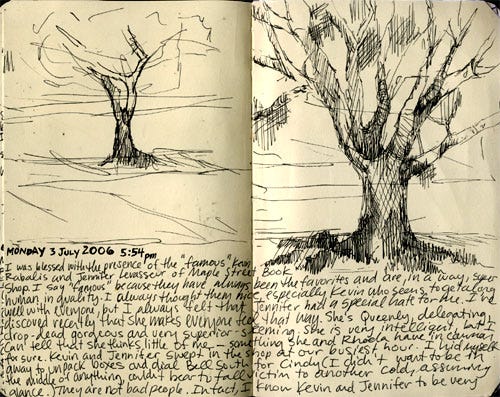 MONDAY 3 JULY 2006 5:54pm
I was blessed with the presence of the "famous" Kevin
Rabalis and Jennifer Levasseur of Maple Street Book
Shop. I say "famous" because they have always been the favorites and are, in a way, super
human in quality. I always thought them nice, especially Kevin who seems to get along
well with everyone, but I always felt that Jennifer had a special hate for me. I've
discovered recently that she makes everyone feel that way. She's Queenly, delegating,
drop-dead gorgeous and very superior seeming. She is very intelligent, but I
can tell that she thinks little of me — something she and Rhoda have in common,
for sure. Kevin and Jennifer swept in the shop at our busiest hour. I hid myself
away to unpack boxes and deal Bell South for Cindy (I didn't want to be in
the middle of anything, couldn't bear to fall victim to another cold, assuming
glance). They are not bad people. In fact, I know Kevin and Jennifer to be very